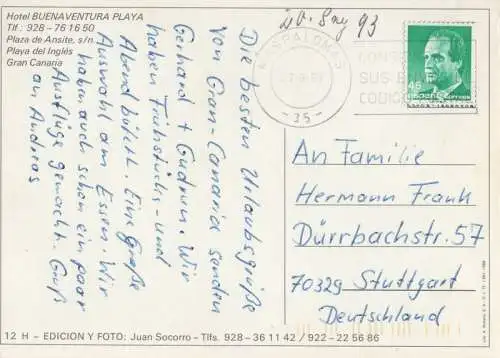 Hotel BUENAVENTURA PLAYA
Tlf.: 928 - 76 16 50
Plaza de Ansite, s/n.
Playa del Inglés
Gran Canaria
93
MASPALOMAS
-35-
CONS
SUS
CODIG
45
ESPAÑA CORREOS
Die besten Urlaubsgrüße
von Gran-Canaria senden
Gerhard + Gudrun. Wir
haben Frühstücks- und
Abend büfett. Eine große
Auswahl am Essen. Wir
haben auch schon ein paar
Ausflüge gemacht. Gruß
an Andreas
An Familie
Hermann Frank
Dürrbachstr. 57
70329 Stuttgart
Deutschland
12 H - EDICION Y FOTO: Juan Socorro - Tlfs. 928-36 11 42 / 922-22 56 86